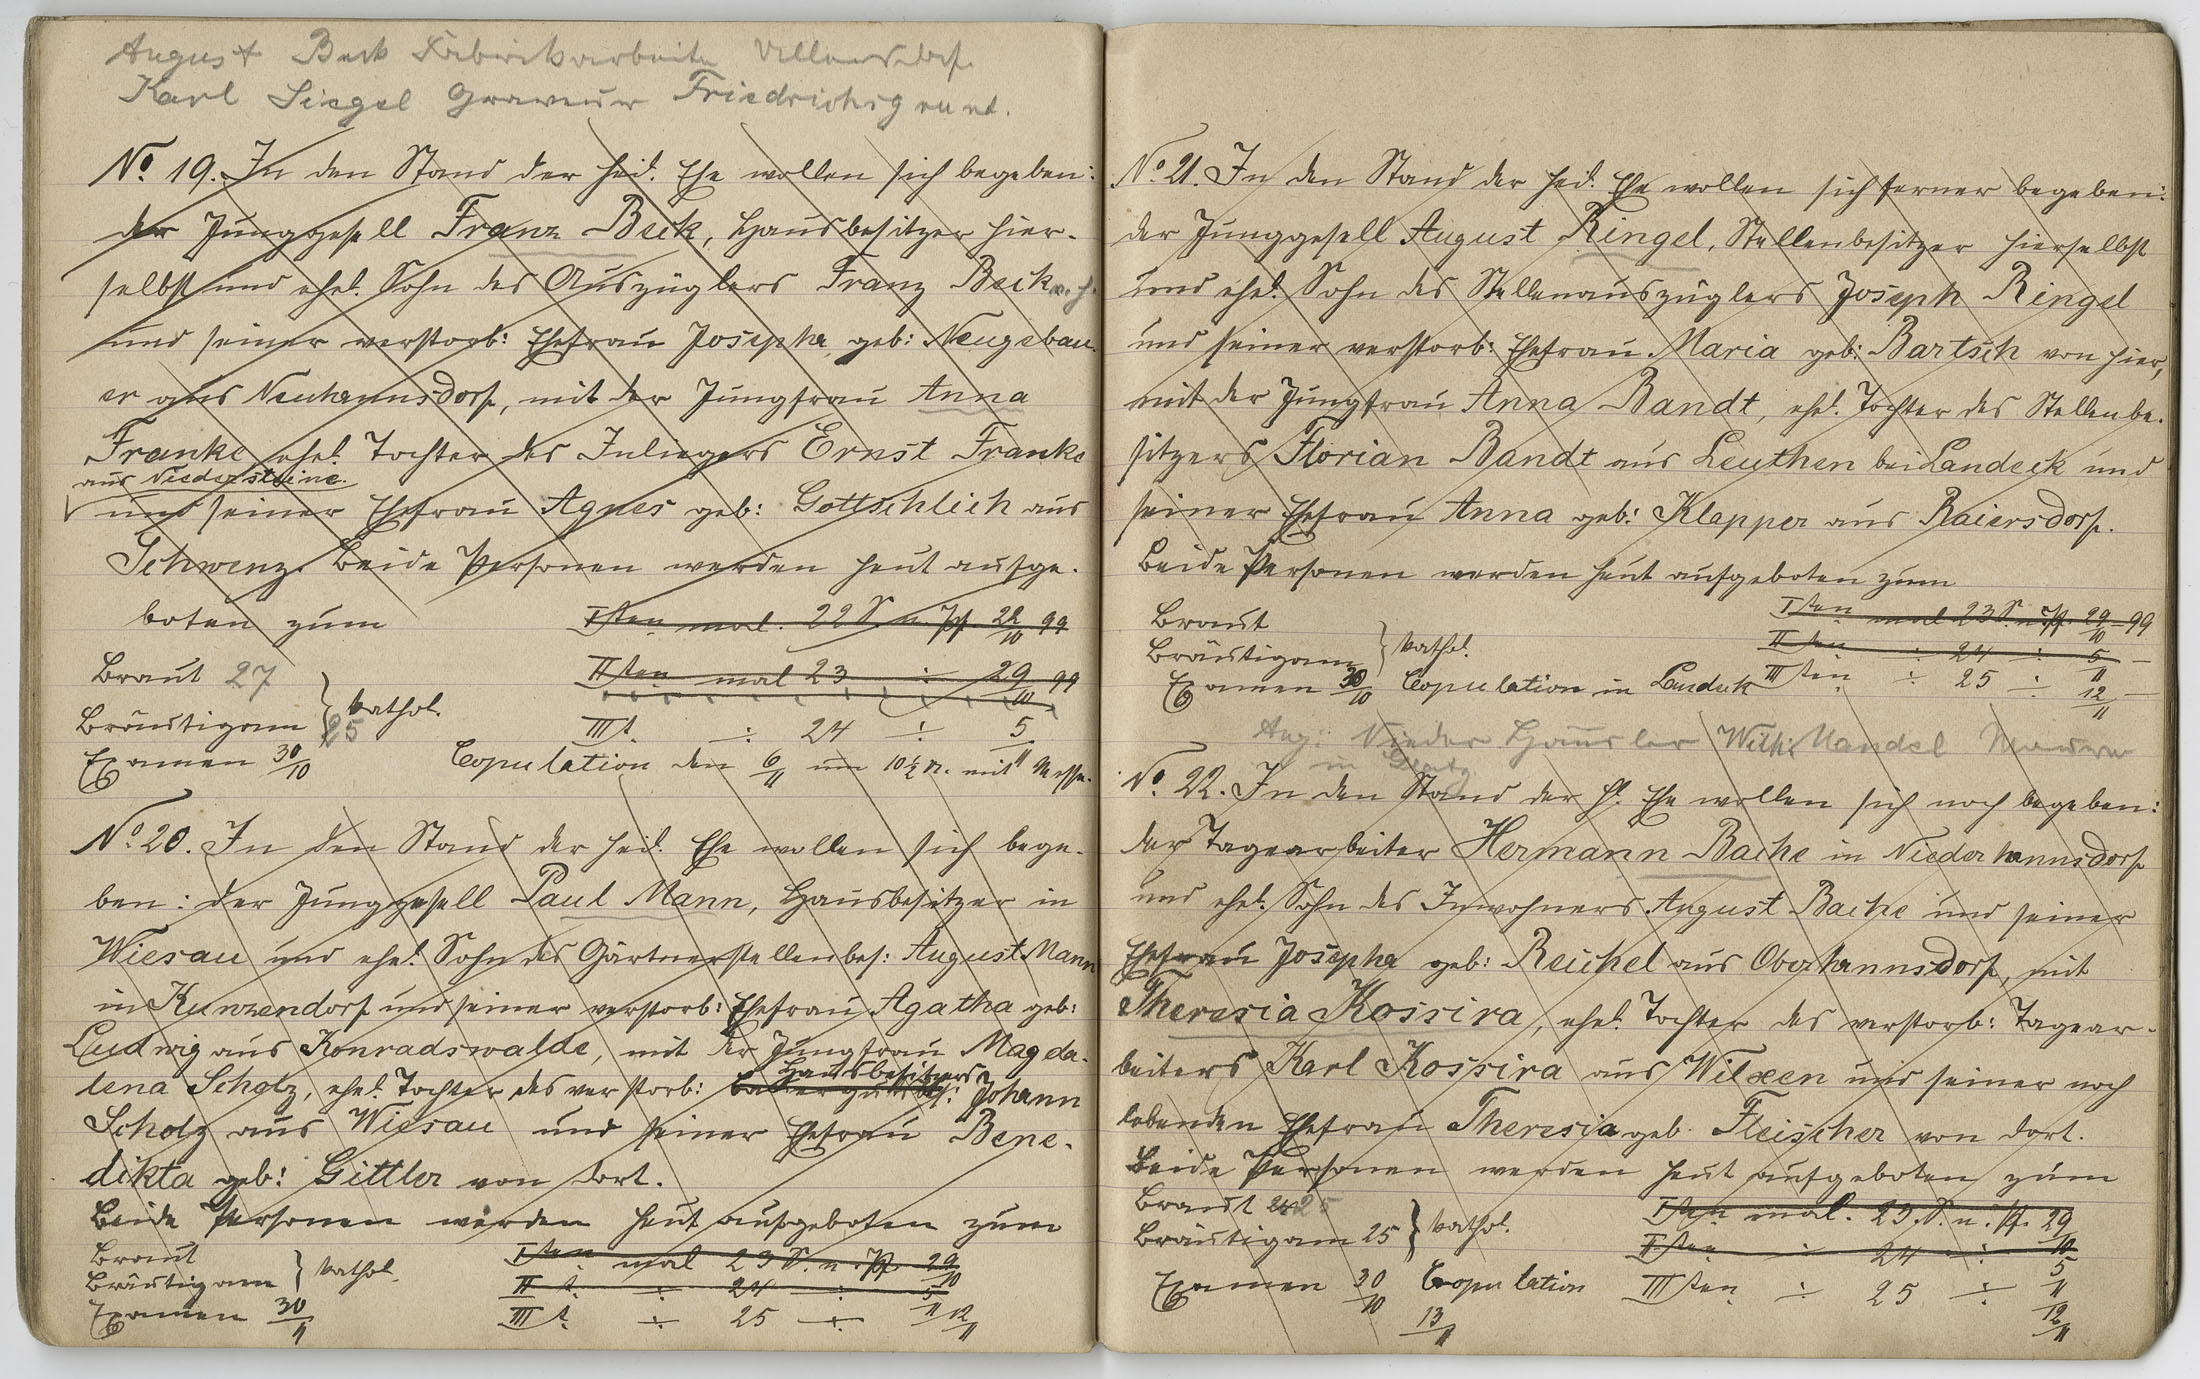 August Beck Fabrikarbeiter Ullersdorf
Karl Siegel Graveur Friedrichsgrund.
No. 19. In den Stand der heil. Ehe wollen sich begeben:
der Junggesell Franz Beck, Hausbesitzer hier-
selbst und ehel. Sohn des Auszüglers Franz Beck v. h.
und seiner verstorb: Ehefrau Josepha geb: Neugebau-
er aus Neuhannsdorf, mit der Jungfrau Anna
Franke ehel. Tochter des Inliegers Ernst Franke
aus Niedersteine.
und seiner Ehefrau Agnes geb: Gottschlich aus
Schwenz. Beide Personen werden heut aufge-
boten zum Isten mal. 22 S. n. Pf. 22/10 99
Braut 27 IIten mal 23 ÷ 29/10 99
Bräutigam 25 } kathol. III t. ÷ 24 ÷ 5/11
Examen 30/10 Copulation den 6/11 um 10½ N. mit Messe.
No. 20. In den Stand der heil. Ehe wollen sich bege-
ben: der Junggesell Paul Mann, Hausbesitzer in
Wiesau und ehel. Sohn des Gärtnerstellenbes: August Mann
in Kunzendorf und seiner verstorb: Ehefrau Agatha geb:
Ludwig aus Konradswalde, mit der Jungfrau Magda-
Hausbesitzers
lena Scholz, ehel. Tochter des verstorb: Bauergutsbes: Johann
Scholz aus Wiesau und seiner Ehefrau Bene-
dikta geb: Gittler von dort.
Beide Personen werden heut aufgeboten zum
Braut Isten mal 23 S. n. Pf. 29/10
Bräutigam } kathol. II t. ÷ 24 ÷ 5/11
Examen 30/11 III t. ÷ 25 ÷ 12/11
No. 21. In den Stand der heil. Ehe wollen sich ferner begeben:
der Junggesell August Ringel, Stellenbesitzer hierselbst
und ehel. Sohn des Stellenauszüglers Joseph Ringel
und seiner verstorb: Ehefrau Maria geb: Bartsch von hier,
mit der Jungfrau Anna Bandt, ehel. Tochter des Stellenbe-
sitzers Florian Bandt aus Leuthen bei Landeck und
seiner Ehefrau Anna geb: Klapper aus Raiersdorf.
Beide Personen werden heut aufgeboten zum
Braut Isten mal 23 S. n. Pf. 29/10 – 99
Bräutigam } kathol. II ten ÷ 24 ÷ 5/11 –
Examen 30/10 Copulation in Landeck III ten ÷ 25 ÷ 12/11 –
Aug: Nieder Häusler Wilh: Mandel Maurer
in Glatz
No. 22. In den Stand der hl. Ehe wollen sich noch begeben:
der Tagearbeiter Hermann Bache in Niederhannsdorf
und ehel. Sohn des Inwohners August Bache und seiner
Ehefrau Josepha geb: Reichel aus Oberhannsdorf, mit
Theresia Kossira, ehel. Tochter des verstorb: Tagear-
beiters Karl Kossira aus Wilxen und seiner noch
lebenden Ehefrau Theresia geb. Fleischer von dort.
Beide Personen werden heut aufgeboten zum
Braut 25 Isten mal. 23. S. n. Pf. 29/10
Bräutigam 25 } kathol. II ten ÷ 24 ÷ 5/11
Examen 30/10 Copulation 13/11 III ten ÷ 25 ÷ 12/11